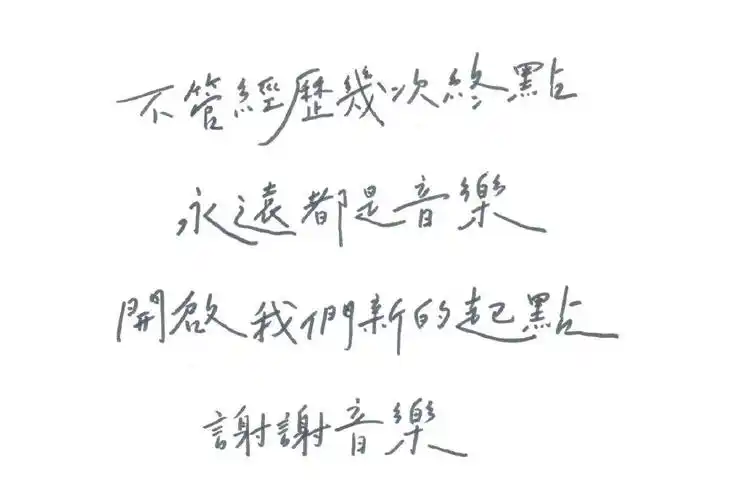 不管經歷幾次終點
永遠都是音樂
開啟我們新的起點
謝謝音樂